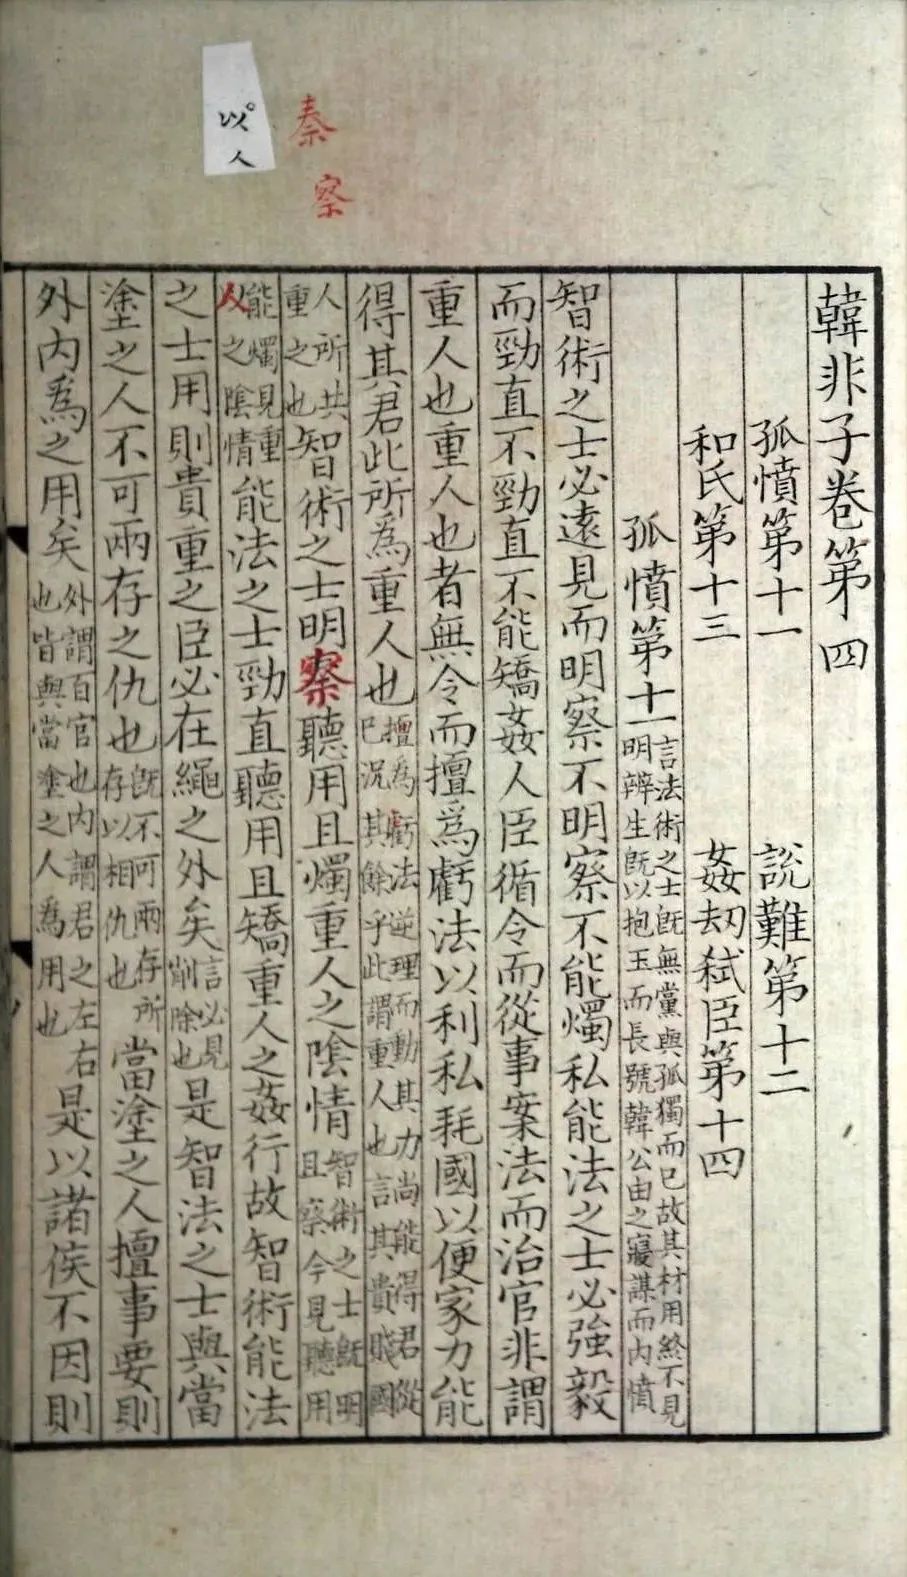 秦
察
以
人
韓非子卷第四
孤憤第十一 說難第十二
和氏第十三 姦劫弒臣第十四
孤憤第十一 言法術之士旣無黨與孤獨而已故其材用終不見明辨生旣以抱玉而長號韓公由之寢謀而內憤
智術之士必遠見而明察不明察不能燭私能法之士必強毅
而勁直不勁直不能矯姦人臣循令而從事案法而治官非謂
重人也重人也者無令而擅爲虧法以利私耗國以便家力能
得其君此所爲重人也 擅爲虧法逆理而動其力尚能得君從巳況其餘乎此謂重人也言其貴賤國
人所共重之也 智術之士明察聽用且燭重人之陰情 智術之士旣明且察今見聽用
能燭見重人之陰情 能法之士勁直聽用且矯重人之姦行故智術能法
之士用則貴重之臣必在繩之外矣 言必見削除也 是智法之士與當
塗之人不可兩存之仇也 旣不可兩存所存以相仇也 當塗之人擅事要則
外內爲之用矣 外謂百官也內謂君之左右也皆與當塗之人爲用也 是以諸侯不因則